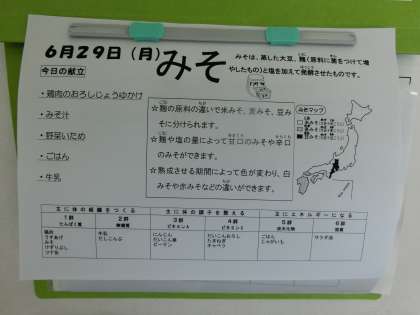 6月29日（月）みそ
みそは、蒸した大豆、麹（原料に菌をつけて増
やしたもの）と塩を加えて発酵させたものです。
今日の献立
・鶏肉のおろしじょうゆかけ
・みそ汁
・野菜いため
・ごはん
・牛乳
☆麹の原料の違いで米みそ、麦みそ、豆み
そに分けられます。
☆麹や塩の量によって甘口のみそや辛口
のみそができます。
☆熟成させる期間によって色が変わり、白
みそや赤みそなどの違いができます。
みそマップ
主に体の組織をつくる 主に体の調子を整える 主にエネルギーになる
1群 2群 3群 4群 5群 6群
たんぱく質 無機質 ビタミンA ビタミンC 炭水化物 脂質
鶏肉 牛乳 にんじん だいこんおろし ごはん サラダ油
うすあげ だしこんぶ だいこん葉 たまねぎ じゃがいも
みそ ピーマン キャベツ
けずりぶし